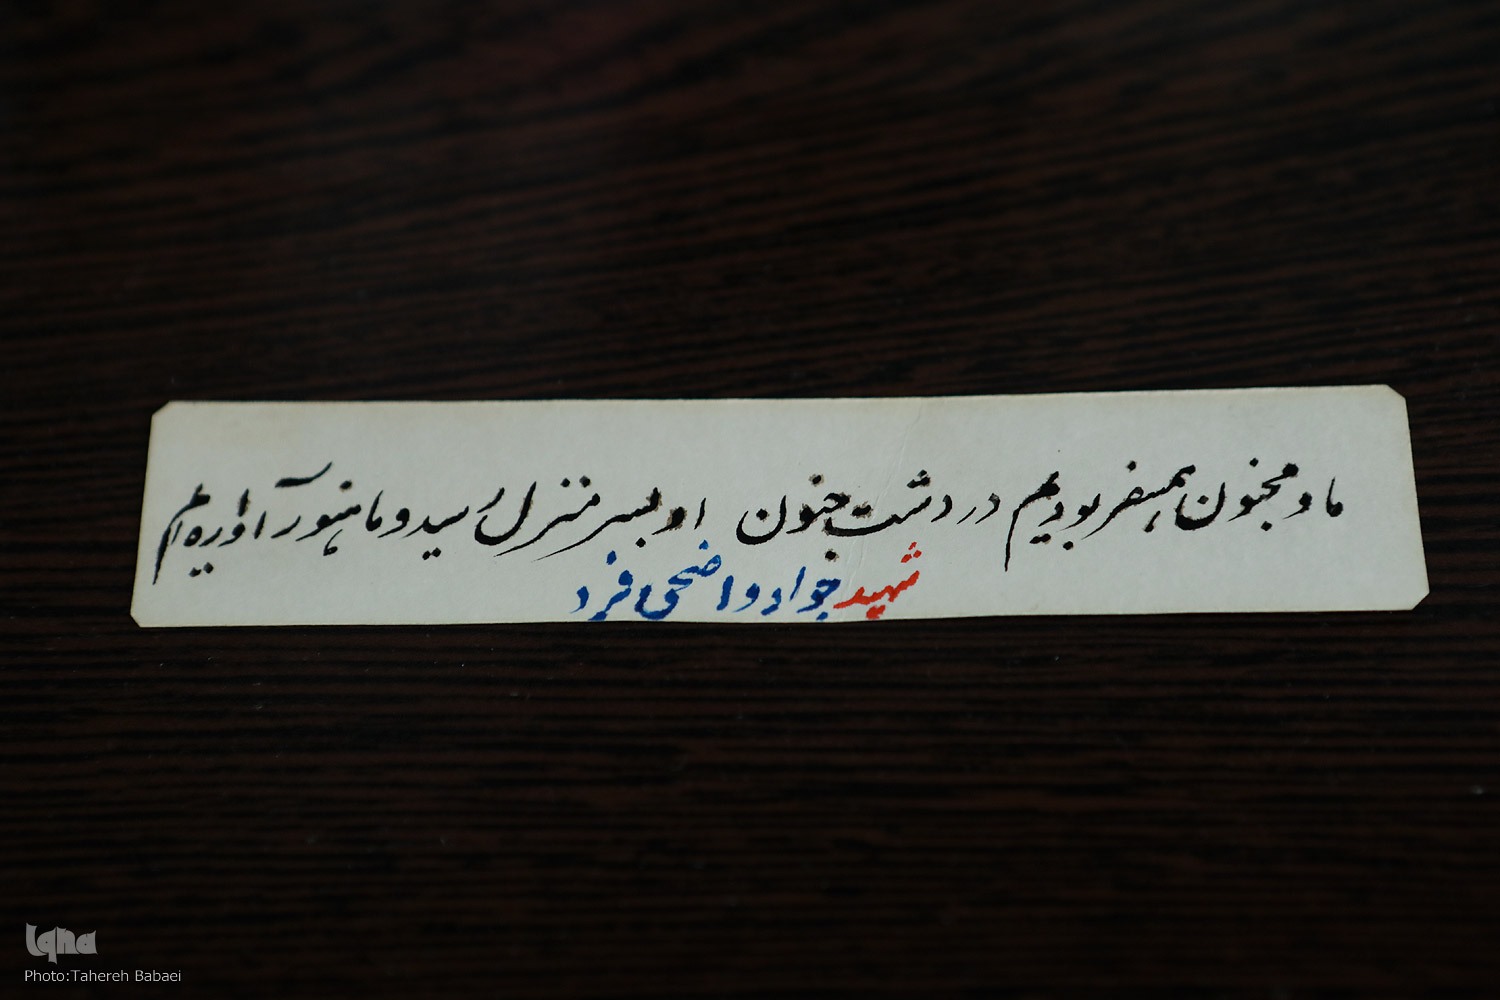 ما و مجنون همسفر بودیم در دشت جنون او بسر منزل رسید و ما هنوز آواره ایم
شهید جواد واضحی فرد
Iqna
Photo:Tahereh Babaei